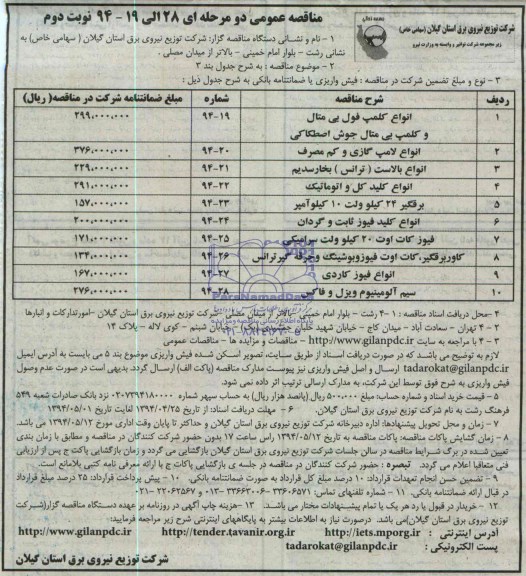 شرکت توزیع نیروی برق استان گیلان (سهامی خاص)
زیر مجموعه شرکت توانیر و وابسته به وزارت نیرو
مناقصه عمومی دو مرحله ای ۲۸ الی ۱۹ - ۹۴ نوبت دوم
۱ - نام و نشانی دستگاه مناقصه گزار: شرکت توزیع نیروی برق استان گیلان ( سهامی خاص) به
نشانی رشت - بلوار امام خمینی - بالاتر از میدان مصلی .
۲ - موضوع مناقصه : به شرح جدول بند ۳
۳ - نوع و مبلغ تضمین شرکت در مناقصه : فیش واریزی یا ضمانتنامه بانکی به شرح جدول ذیل :
ردیف شرح مناقصه شماره مبلغ ضمانتنامه شرکت در مناقصه( ریال)
۱ انواع کلمپ فول بی متال و کلمپ بی متال جوش اصطکاکی ۹۴-۱۹ ۲۹۹,۰۰۰,۰۰۰
۲ انواع لامپ گازی و کم مصرف ۹۴-۲۰ ۳۷۶,۰۰۰,۰۰۰
۳ انواع بالاست ( ترانس ) بخارسدیم ۹۴-۲۱ ۲۲۹,۰۰۰,۰۰۰
۴ انواع کلید کل و اتوماتیک ۹۴-۲۲ ۲۹۱,۰۰۰,۰۰۰
۵ برقگیر ۲۴ کیلو ولت ۱۰ کیلوآمپر ۹۴-۲۳ ۱۵۷,۰۰۰,۰۰۰
۶ انواع کلید فیوز ثابت و گردان ۹۴-۲۴ ۲۰۰,۰۰۰,۰۰۰
۷ فیوز کات اوت ۲۰ کیلو ولت سرامیکی ۹۴-۲۵ ۱۷۱,۰۰۰,۰۰۰
۸ کاوربرقگیر،کات اوت فیوزوبوشینگ وجرقه گیرترانس ۹۴-۲۶ ۱۳۴,۰۰۰,۰۰۰
۹ انواع فیوز کاردی ۹۴-۲۷ ۱۶۷,۰۰۰,۰۰۰
۱۰ سیم آلومینیوم ویزل و فاکس ۹۴-۲۸ ۲۷۶,۰۰۰,۰۰۰
۴ -محل دریافت اسناد مناقصه : ۱ -۴ رشت - بلوار امام خمینی - بالاتر از میدان مصلی - شرکت توزیع نیروی برق استان گیلان -امورتدارکات و انبارها
۲ - ۴ تهران - سعادت آباد - میدان کاج - خیابان شهید - خیابان شبنم - کوی لاله - پلاک ۱۴
۳ - ۴ با مراجعه به سایت http://www.gilanpdc.ir - مناقصات و مزایده ها - مناقصات عمومی
لازم به توضیح می باشد که در صورت دریافت اسناد از طریق سایت، تصویر اسکن شده فیش واریزی موضوع بند ۵ می بایست به آدرس ایمیل
tadarokat@gilanpdc.ir ارسال و اصل فیش واریزی نیز پیوست مدارک مناقصه (پاکت الف) ارسال گردد. بدیهی است در صورت عدم وصول
فیش واریزی به شرح فوق توسط این شرکت، به مدارک ارسالی ترتیب اثر داده نمی شود.
۵ - قیمت خرید اسناد و شماره حساب: مبلغ ۵۰۰,۰۰۰ ریال (پانصد هزار ریال) به حساب سپهر شماره ۰۲۰۷۳۹۴۱۸۰۰۰۰ نزد بانک صادرات شعبه ۵۴۹
فرهنگ رشت به نام شرکت توزیع نیروی برق استان گیلان. ۶ - مهلت دریافت اسناد: از تاریخ ۱۳۹۴/۰۴/۲۵ لغایت تاریخ ۱۳۹۴/۰۵/۰۱
۷ - زمان و محل تحویل پیشنهادها: اداره دبیرخانه شرکت توزیع نیروی برق استان گیلان و حداکثر تا پایان وقت اداری مورخ ۱۳۹۴/۰۵/۱۲ می باشد.
۸ - زمان گشایش پاکات مناقصه: پاکات مناقصه به تاریخ ۱۳۹۴/۰۵/۱۲ راس ساعت ۱۷ بدون حضور شرکت کنندگان در مناقصه و مطابق با زمان بندی
تعیین شده در برگ شرایط مناقصه در سالن جلسات شرکت توزیع نیروی برق استان گیلان بازگشایی می گردد و زمان بازگشایی پاکت ج پس از ارزیابی
فنی متعاقبا اعلام می گردد. تبصره : حضور شرکت کنندگان در مناقصه در جلسه ی بازگشایی پاکات ج با ارائه معرفی نامه کتبی بلامانع است.
۹ - تضمین حسن انجام تعهدات قرارداد: ۱۰ درصد مبلغ کل قرارداد به صورت ضمانتنامه بانکی. ۱۰ - پیش پرداخت قرارداد: ۲۵ درصد مبلغ قرارداد
در قبال ارائه ضمانتنامه بانکی. ۱۱ - شماره تلفنهای تماس: ۳۳۶۰۶۵۷۱ - ۳۳۶۶۳۰۰۶-۰۱۳ و ۲۲۰۶۲۵۶۷ -۰۲۱
۱۲ - خریدار در قبول یا رد هر یک یا تمام پیشنهادات مختار می باشد. ۱۳ -هزینه چاپ آگهی در روزنامه بر عهده دستگاه مناقصه گزار(شرکت
توزیع نیروی برق استان گیلان)می باشد. درصورت نیاز به اطلاعات بیشتر به پایگاههای اینترنتی شرح زیر مراجعه فرمایید:
آدرس اینترنتی : http://iets.mporg.ir http://tender.tavanir.org.ir http://www.gilanpdc.ir
پست الکترونیکی : tadarokat@gilanpdc.ir
شرکت توزیع نیروی برق استان گیلان